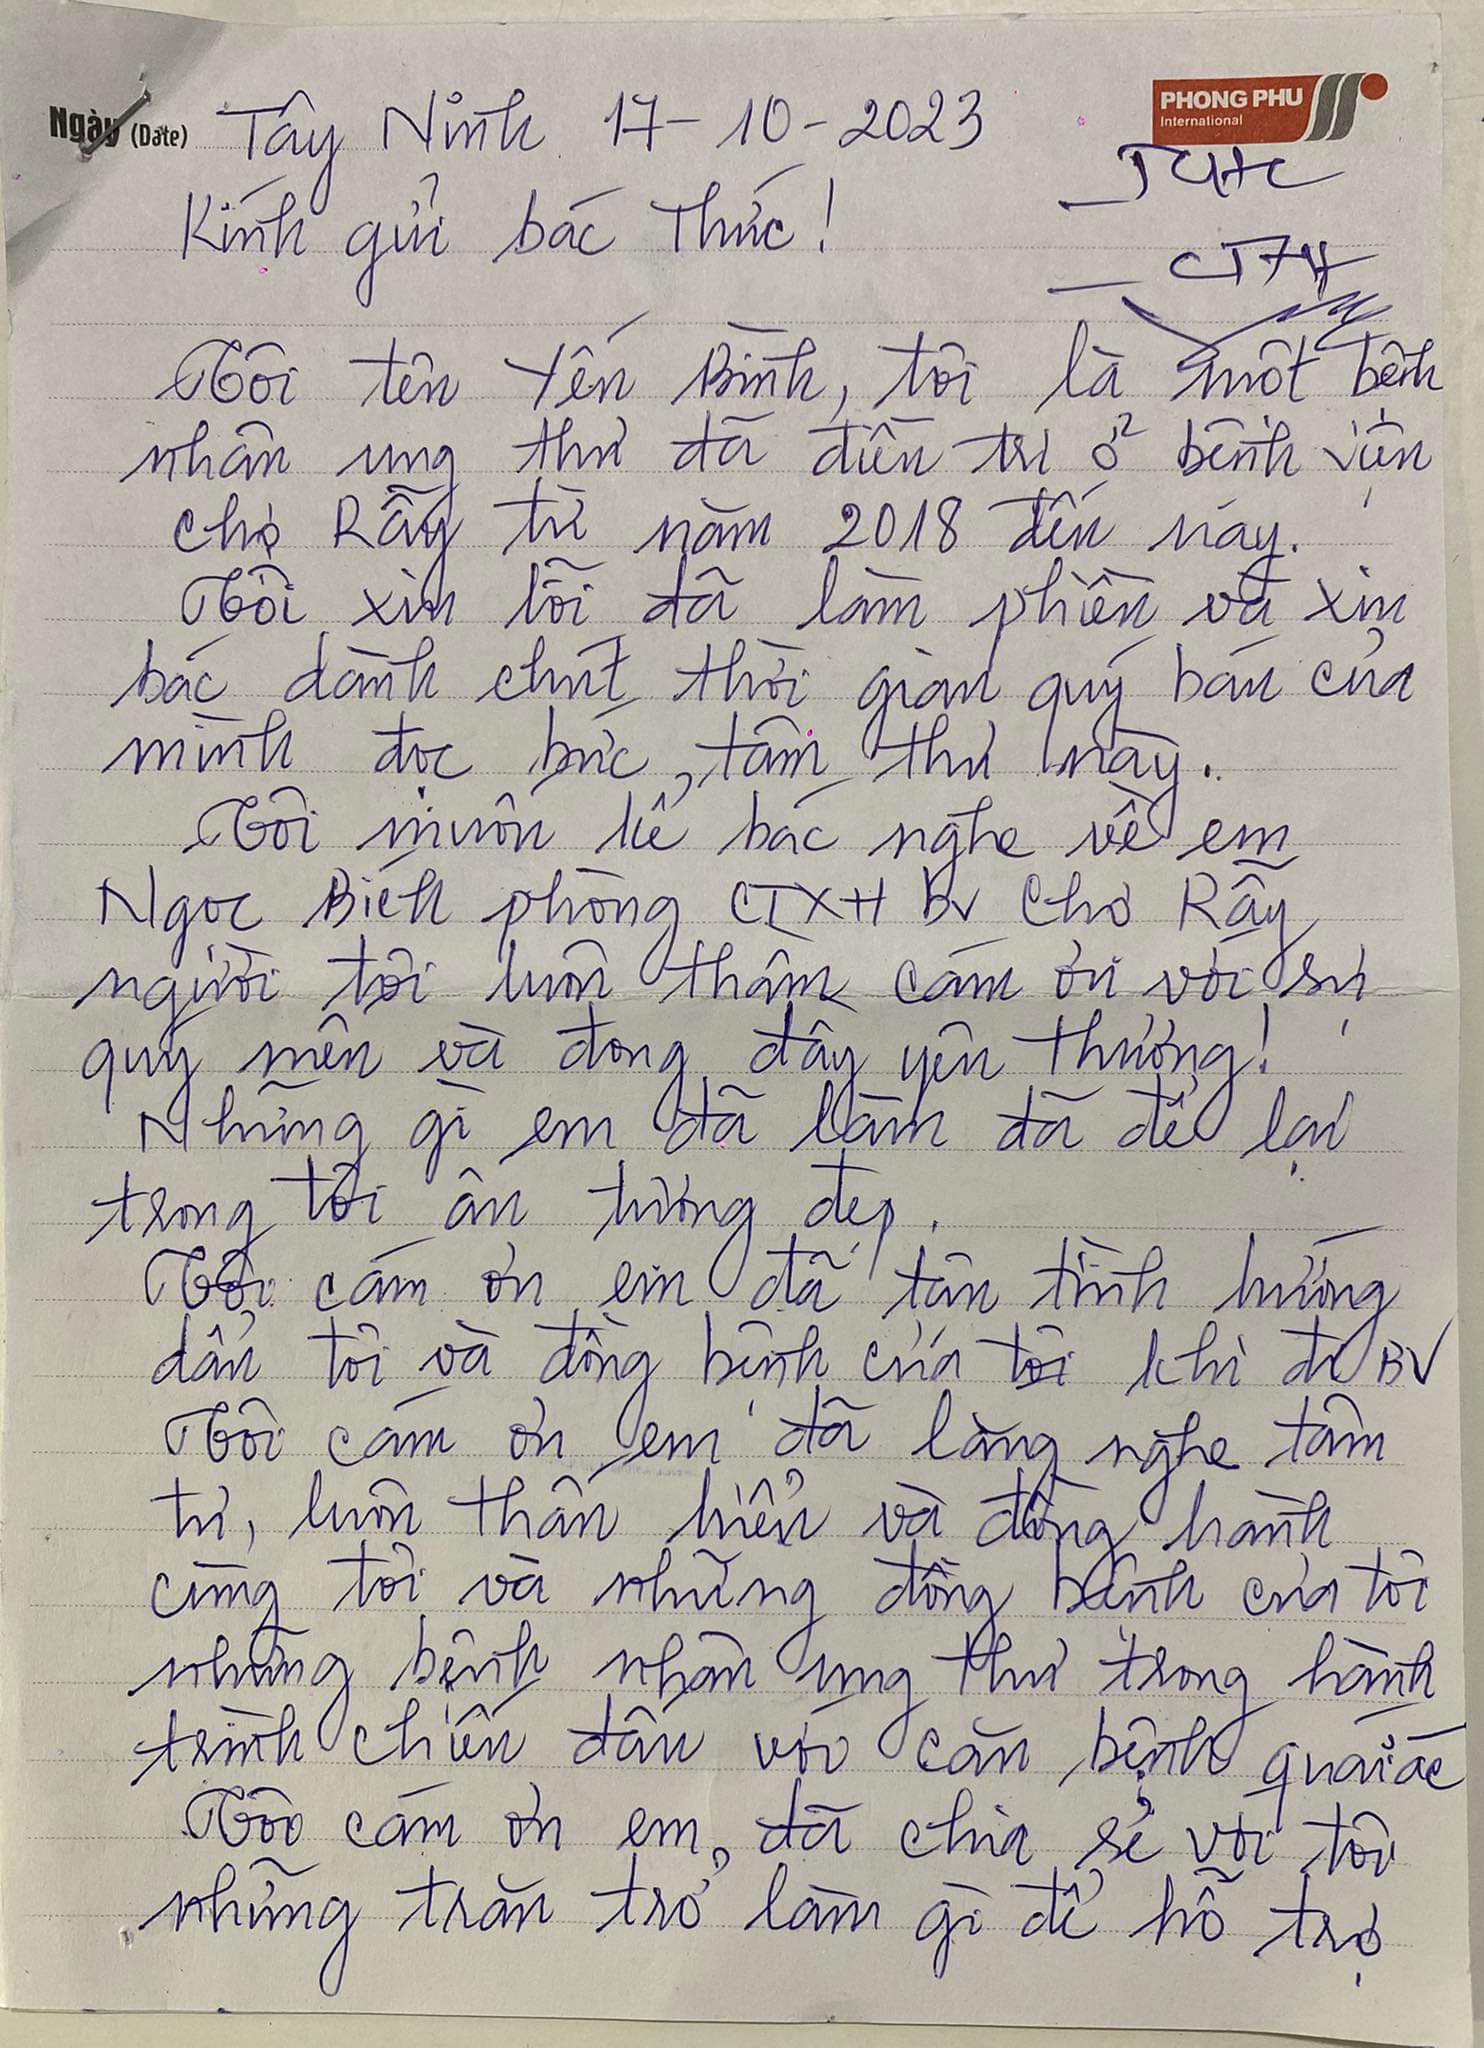 Ngày (Date) Tây Ninh 17-10-2023
PHONG PHU
International
Kính gửi bác Thức!
_ TCHC
_ CTXH
Tôi tên Yến Bình, tôi là một bệnh
nhân ung thư đã điều trị ở bệnh viện
chợ Rẫy từ năm 2018 đến nay.
Tôi xin lỗi đã làm phiền và xin
bác dành chút thời gian quý báu của
mình đọc bức tâm thư này.
Tôi muốn kể bác nghe về em
Ngọc Bích phòng CTXH BV Chợ Rẫy
người tôi luôn thầm cám ơn với sự
quý mến và đong đầy yêu thương!
Những gì em đã làm đã để lại
trong tôi ấn tượng đẹp.
Tôi cám ơn em đã tận tình hướng
dẩn tôi và đồng bệnh của tôi khi đi BV
Tôi cám ơn em đã lắng nghe tâm
tư, luôn thấu hiểu và đồng hành
cùng tôi và những đồng bệnh của tôi
những bệnh nhân ung thư trong hành
trình chiến đấu với căn bệnh quái ác
Tôi cám ơn em, đã chia sẻ với tôi
những trăn trở làm gì để hỗ trợ